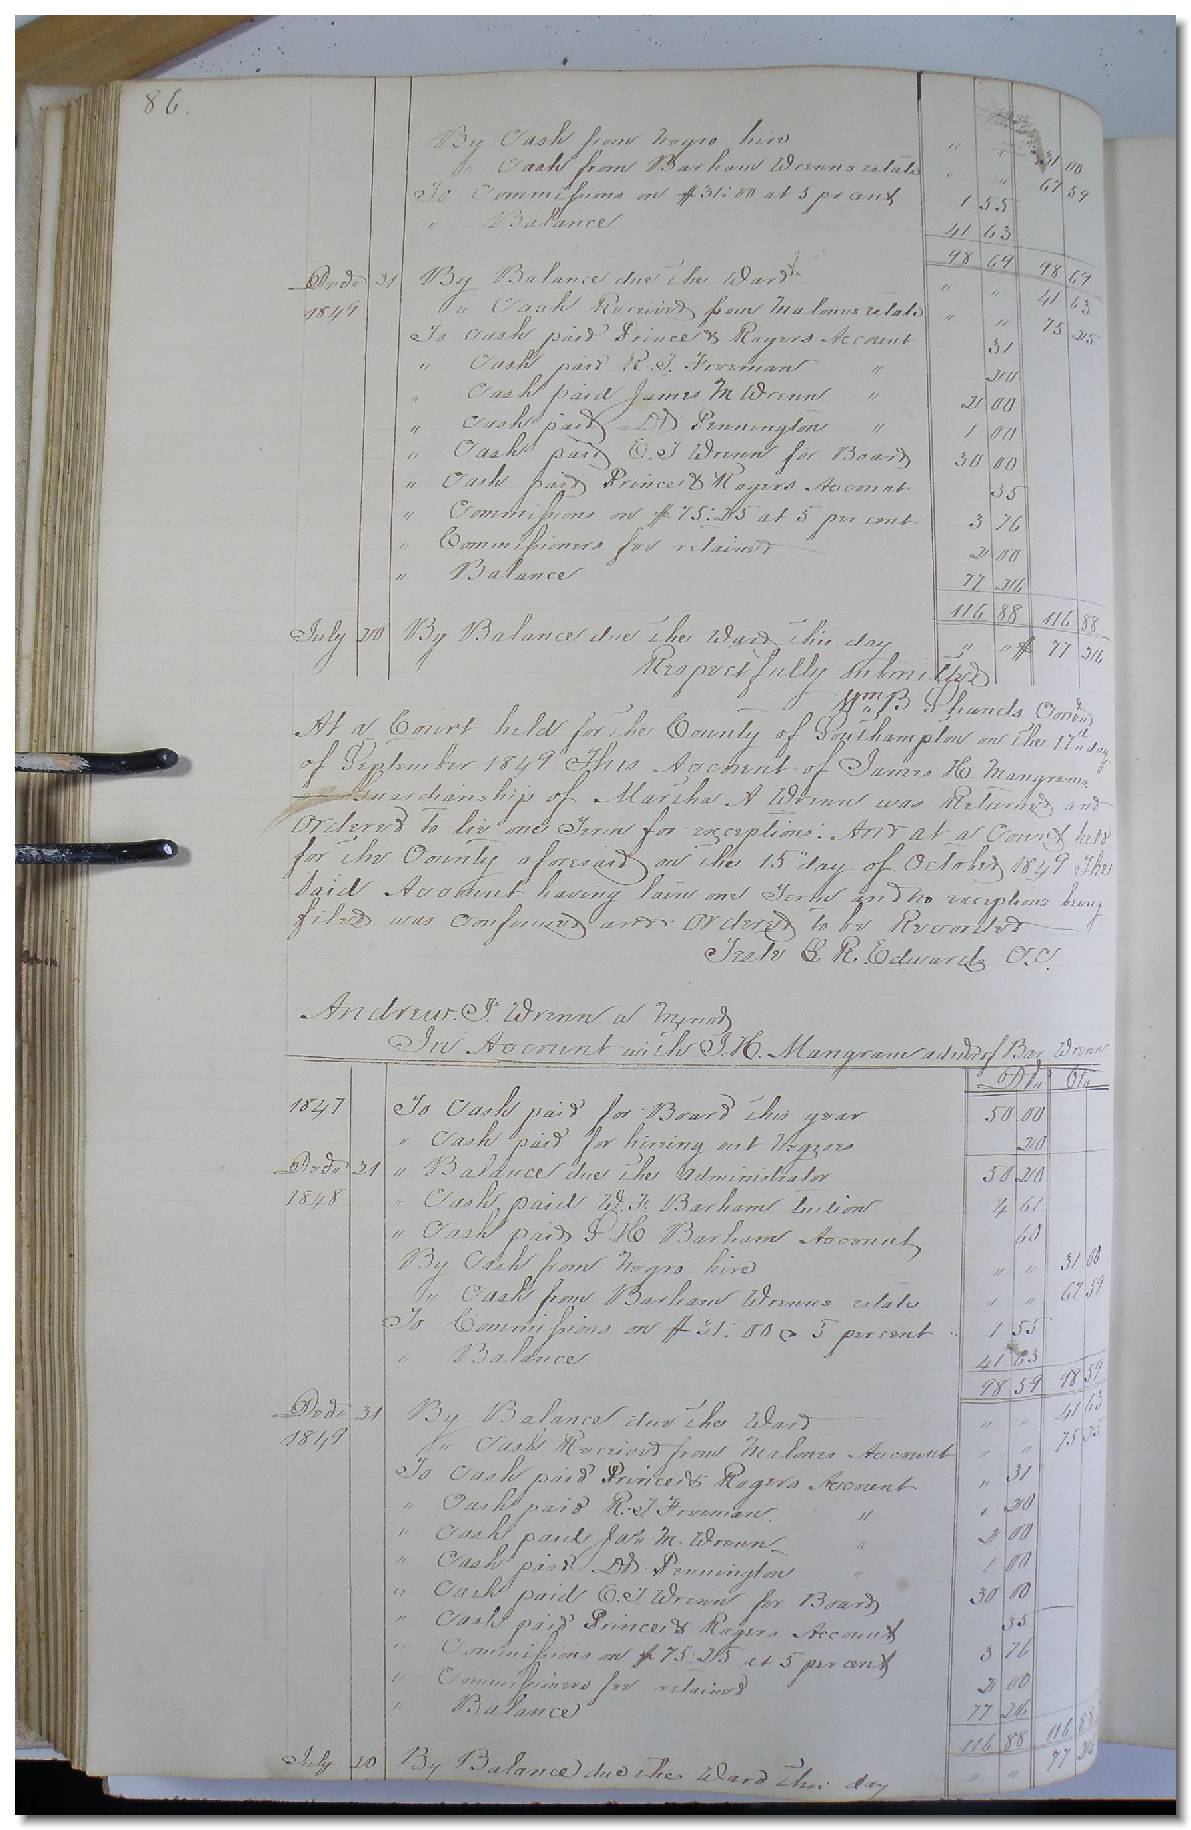 86.
By Cash from Negro hire " " 31 00
" Cash from Barham Wrenns estate " " 67 59
To Commissions on $31:00 at 5 pr cent 1 55
" Balance 41 63
98 69 98 69
Decr 31 By Balance due the Ward " " 41 63
1849 " Cash Received from Malones estate " " 75 25
To Cash paid Prince & Rogers Account 31
" Cash paid R. T. Freeman " 20
" Cash paid James M Wrenn " 2 00
" Cash paid Pennington " 1 00
" Cash paid E. T Wrenn for Board 30 00
" Cash paid Prince & Rogers Account 35
" Commissions on $75:25 at 5 per cent 3 76
" Commissioners fee retained 2 00
" Balance 77 26
116 88 116 88
July 20 By Balance due the Ward this day " " $ 77 26
Respectfully submitted
Wm B Shands Comr
At a Court held for the County of Southampton on the 17th day
of September 1849 This Account of James H. Mangrams
Guardianship of Martha A Wrenn was Returned and
Ordered to lie one Term for exceptions: And at a Court held
for the County aforesaid on the 15th day of October 1849 The
Said Account having lain one Term and no exceptions being
filed was Confirmed and Ordered to be Recorded
Teste L R. Edwards C.C.
Andrew. J. Wrenn a
In Account with J. H. Mangram admr of Bar Wrenn
Dr Cr
1847 To Cash paid for Board this year 50 00
" Cash paid for hirring out Negroes 20
Decr 31 " Balance due the Administrator 50 20
1848 " Cash paid Barham tuition 4 61
" Cash paid S H Barham Account 60
By Cash from Negro hire " " 31 00
" Cash from Barham Wrenns estate " " 67 59
To Commissions on $31:00 @ 5 per cent 1 55
" Balance 41 63
98 59 98 59
Decr 31 By Balance due the Ward " " 41 63
1849 " Cash Received from Malones Account " " 75 25
To Cash paid Prince & Rogers Account " 31
" Cash paid R. T Freeman " " 20
" Cash paid Jas M. Wrenn " 2 00
" Cash paid Pennington " 1 00
" Cash paid E. T Wrenn for Board 30 00
" Cash paid Prince & Rogers Account 35
" Commissions on $75:25 at 5 per cent 3 76
" Commissioners fee retained 2 00
" Balance 77 26
116 88 116 88
July 20 By Balance due the Ward this day " " 77 26